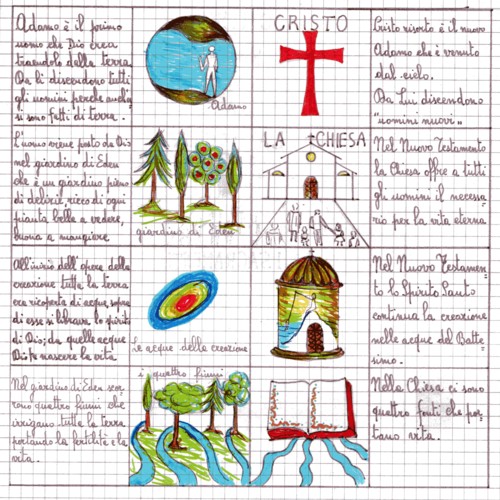 Adamo è il primo
uomo che Dio crea
traendolo dalla terra.
Da lì discendono tutti
gli uomini perché anche
si sono fatti di terra.
Adamo
CRISTO
Cristo risorto è il nuovo
Adamo che è venuto
dal cielo.
Da Lui discendono
"uomini nuovi"
L'uomo viene posto da Dio
nel giardino di Eden
che è un giardino pieno
di delizie, ricco di ogni
pianta bella a vedere,
buona a mangiare
giardino di Eden
LA CHIESA
Nel Nuovo Testamento
la Chiesa offre a tutti
gli uomini il necessa
rio per la vita eterna
All'inizio dell'opera della
creazione tutta la terra
era ricoperta di acque, sopra
di esse si librava lo spirito
di Dio; da quelle acque
Dio fa nascere la vita
le acque della creazione
Nel Nuovo Testamen-
to lo Spirito Santo
continua la creazione
nelle acque del Batte
simo.
Nel giardino di Eden scor
rono quattro fiumi che
irrigano tutta la terra
portando la fertilità e la
vita.
i quattro fiumi
Nella Chiesa ci sono
quattro fonti che por-
tano vita.